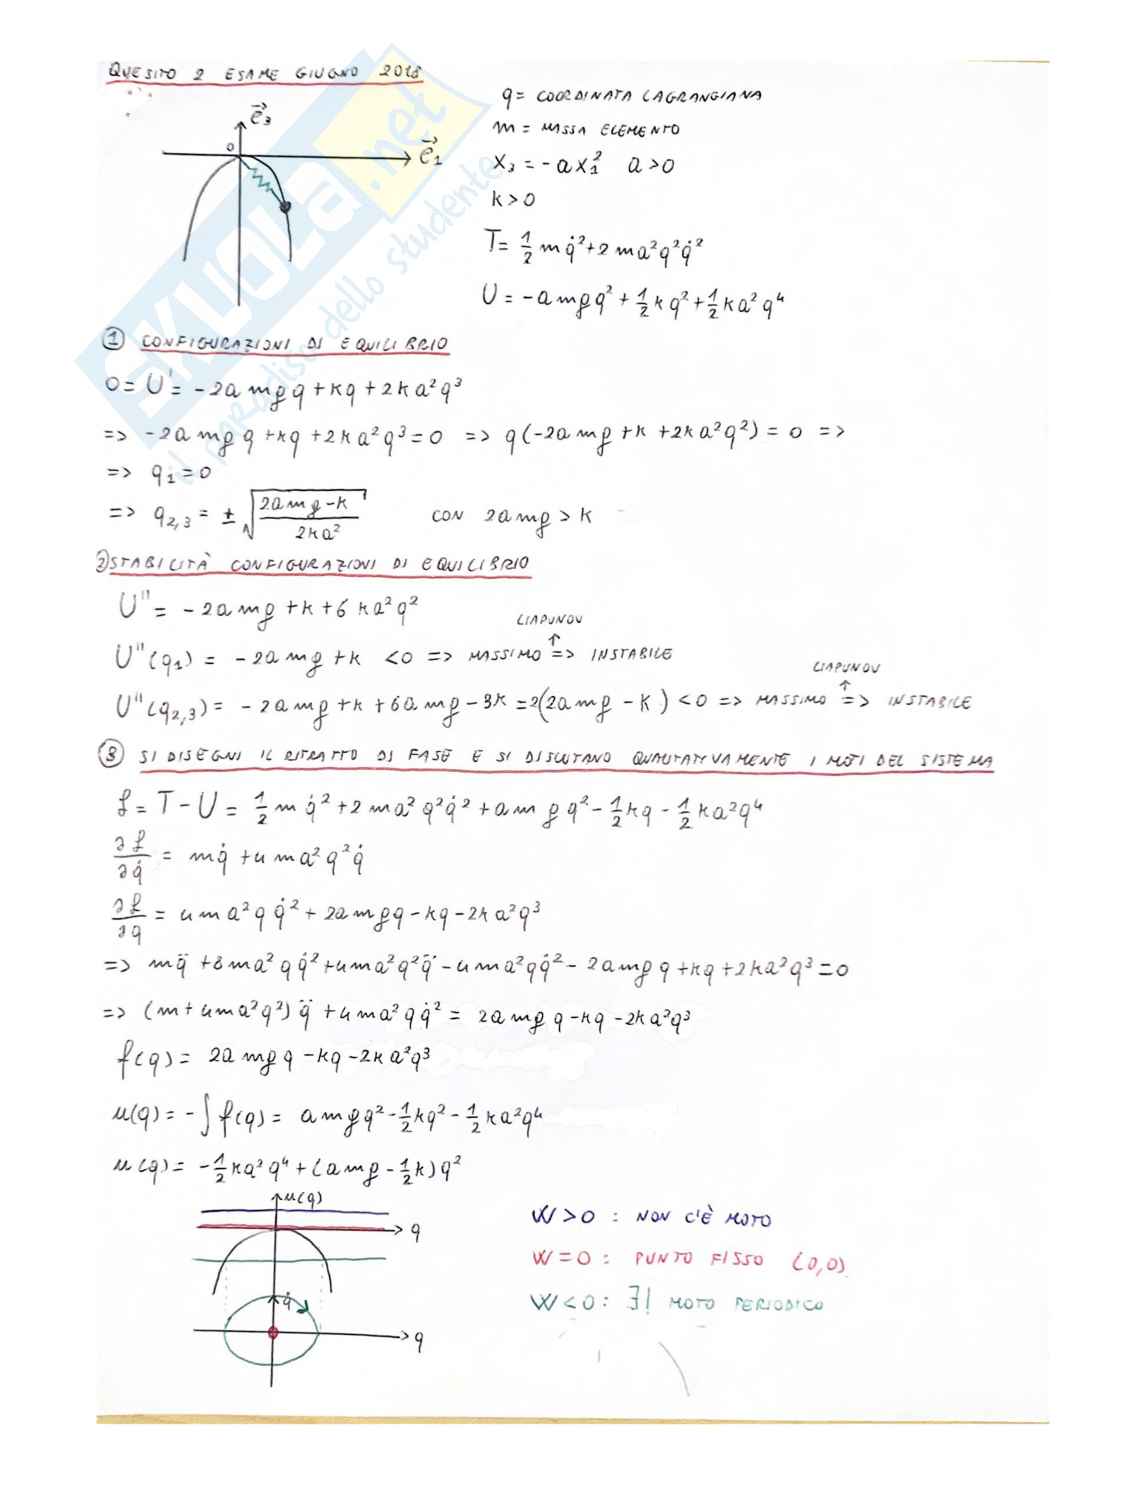 QUESITO 2 ESAME GIUGNO 2018
e⃗3
O
e⃗1
q = COORDINATA LAGRANGIANA
m = MASSA ELEMENTO
x₃ = -a x₁² a>0
k>0
T = 1/2 m q̇² + 2 m a² q² q̇²
U = -a m g q² + 1/2 k q² + 1/2 k a² q⁴
① CONFIGURAZIONI DI EQUILIBRIO
0 = U' = -2a m g q + k q + 2 k a² q³
=> -2a m g q + k q + 2 k a² q³ = 0 => q(-2a m g + k + 2k a² q²) = 0 =>
=> q₁ = 0
=> q₂,₃ = ± √((2a m g - k)/(2 k a²)) CON 2a m g > k
② STABILITÀ CONFIGURAZIONI DI EQUILIBRIO
U'' = -2a m g + k + 6 k a² q²
LIAPUNOV
U''(q₁) = -2a m g + k <0 => MASSIMO => INSTABILE
LIAPUNOV
U''(q₂,₃) = -2a m g + k + 6a m g - 3k = 2(2a m g - k) <0 => MASSIMO => INSTABILE
③ SI DISEGNI IL RITRATTO DI FASE E SI DISCUTANO QUALITATIVAMENTE I MOTI DEL SISTEMA
ℒ = T - U = 1/2 m q̇² + 2 m a² q² q̇² + a m g q² - 1/2 k q - 1/2 k a² q⁴
∂ℒ/∂q̇ = m q̇ + 4 m a² q² q̇
∂ℒ/∂q = 4 m a² q q̇² + 2a m g q - k q - 2 k a² q³
=> m q̈ + 8 m a² q q̇² + 4 m a² q² q̈ - 4 m a² q q̇² - 2a m g q + k q + 2 k a² q³ = 0
=> (m + 4 m a² q²) q̈ + 4 m a² q q̇² = 2a m g q - k q - 2 k a² q³
f(q) = 2a m g q - k q - 2 k a² q³
u(q) = -∫ f(q) = a m g q² - 1/2 k q² - 1/2 k a² q⁴
u(q) = -1/2 k a² q⁴ + (a m g - 1/2 k) q²
u(q)
q
q̇
q
W>0 : NON C'È MOTO
W=0 : PUNTO FISSO (0,0)
W<0 : ∃! MOTO PERIODICO
SKUOLA.net
il paradiso dello studente